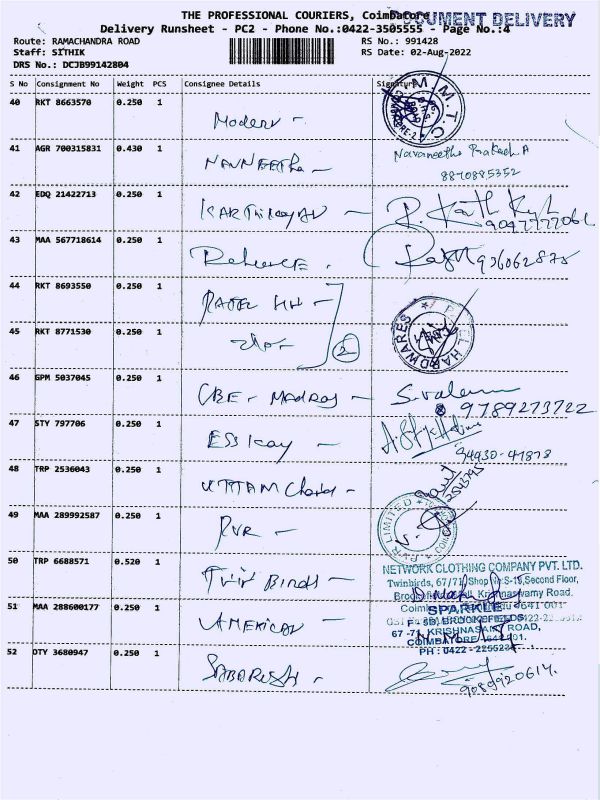 THE PROFESSIONAL COURIERS, Coimbatore
DOCUMENT DELIVERY
Delivery Runsheet - PC2 - Phone No.:0422-3505555 - Page No.:4
Route: RAMACHANDRA ROAD
RS No.: 991428
Staff: SITHIK
RS Date: 02-Aug-2022
DRS No.: DCJB99142804
S No Consignment No Weight PCS Consignee Details Signature
40 RKT 8663570 0.250 1 Modern - M.M.T.C.
41 AGR 700315831 0.430 1 NAVNEETha - Navaneetha Prakash A
8870885352
42 EDQ 21422713 0.250 1 KARThikeyAN -
43 MAA 567718614 0.250 1 Reliance.
44 RKT 8693550 0.250 1 PATEL HW - PATEL HARDWARES
45 RKT 8771530 0.250 1 2
46 GPM 5037045 0.250 1 CBE - MADRAS -
9789273722
47 STY 797706 0.250 1 ESSKay -
94430-47878
48 TRP 2536043 0.250 1 UTTAM Chand -
49 MAA 289992587 0.250 1 PVR - PVR LIMITED
50 TRP 6688571 0.520 1 Twin Birds -
NETWORK CLOTHING COMPANY PVT. LTD.
Twinbirds, 67/71, Shop No:S-15, Second Floor,
Brookefields Mall, Krishnaswamy Road.
51 MAA 288600177 0.250 1 AMERICAN -
SPARKLE
F - 50, BROOKEFIELDS,
67 -71, KRISHNASAMY ROAD,
COIMBATORE - 641001.
PH : 0422 -
52 DTY 3680947 0.250 1 SABARISH -
9089920614.